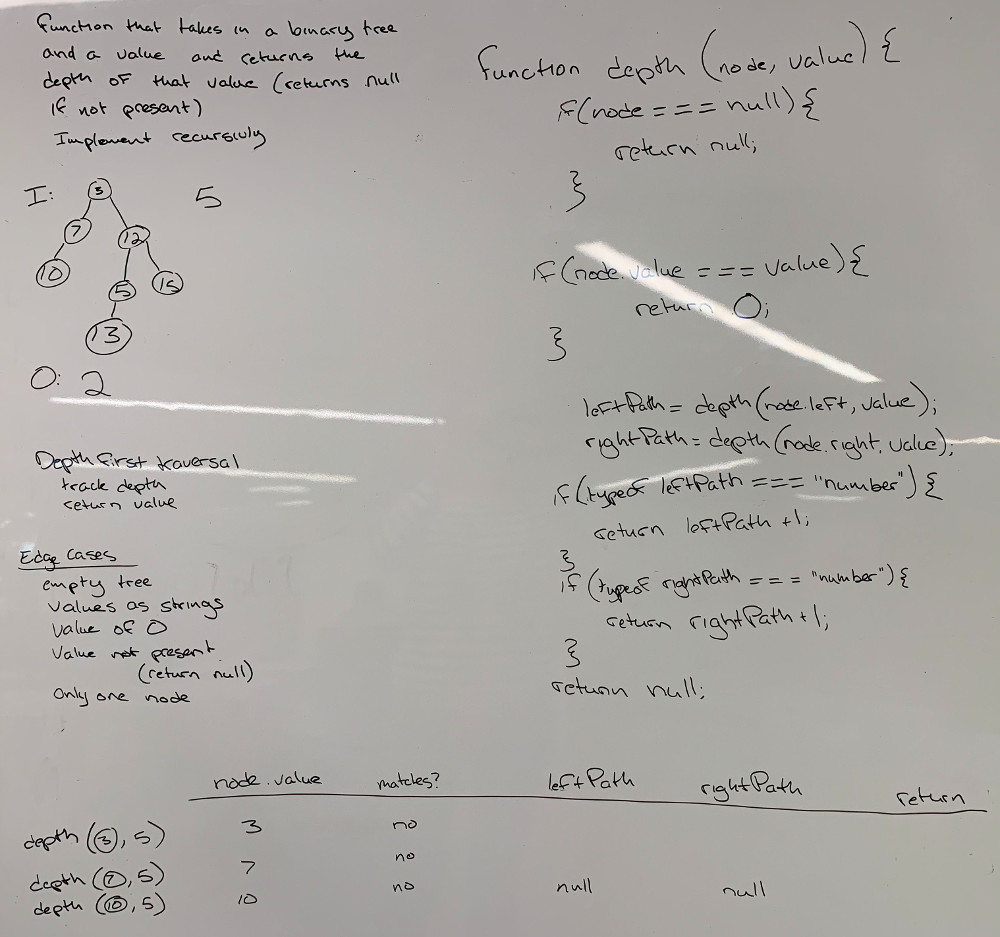 Function that takes in a binary tree
and a value and returns the
depth of that value (returns null
if not present)
Implement recursivly
I:
5
3
7
12
10
5
15
13
O: 2
Depth first traversal
track depth
return value
Edge Cases
empty tree
values as strings
value of 0
Value not present
(return null)
Only one node
function depth (node, value) {
if(node === null){
return null;
}
if(node.value === value){
return 0;
}
leftPath = depth(node.left, value);
rightPath = depth(node.right, value);
if(typeof leftPath === "number"){
return leftPath +1;
}
if(typeof rightPath === "number"){
return rightPath+1;
}
return null;
node.value matches? leftPath rightPath return
depth(3, 5) 3 no
depth(7, 5) 7 no
depth(10, 5) 10 no null null